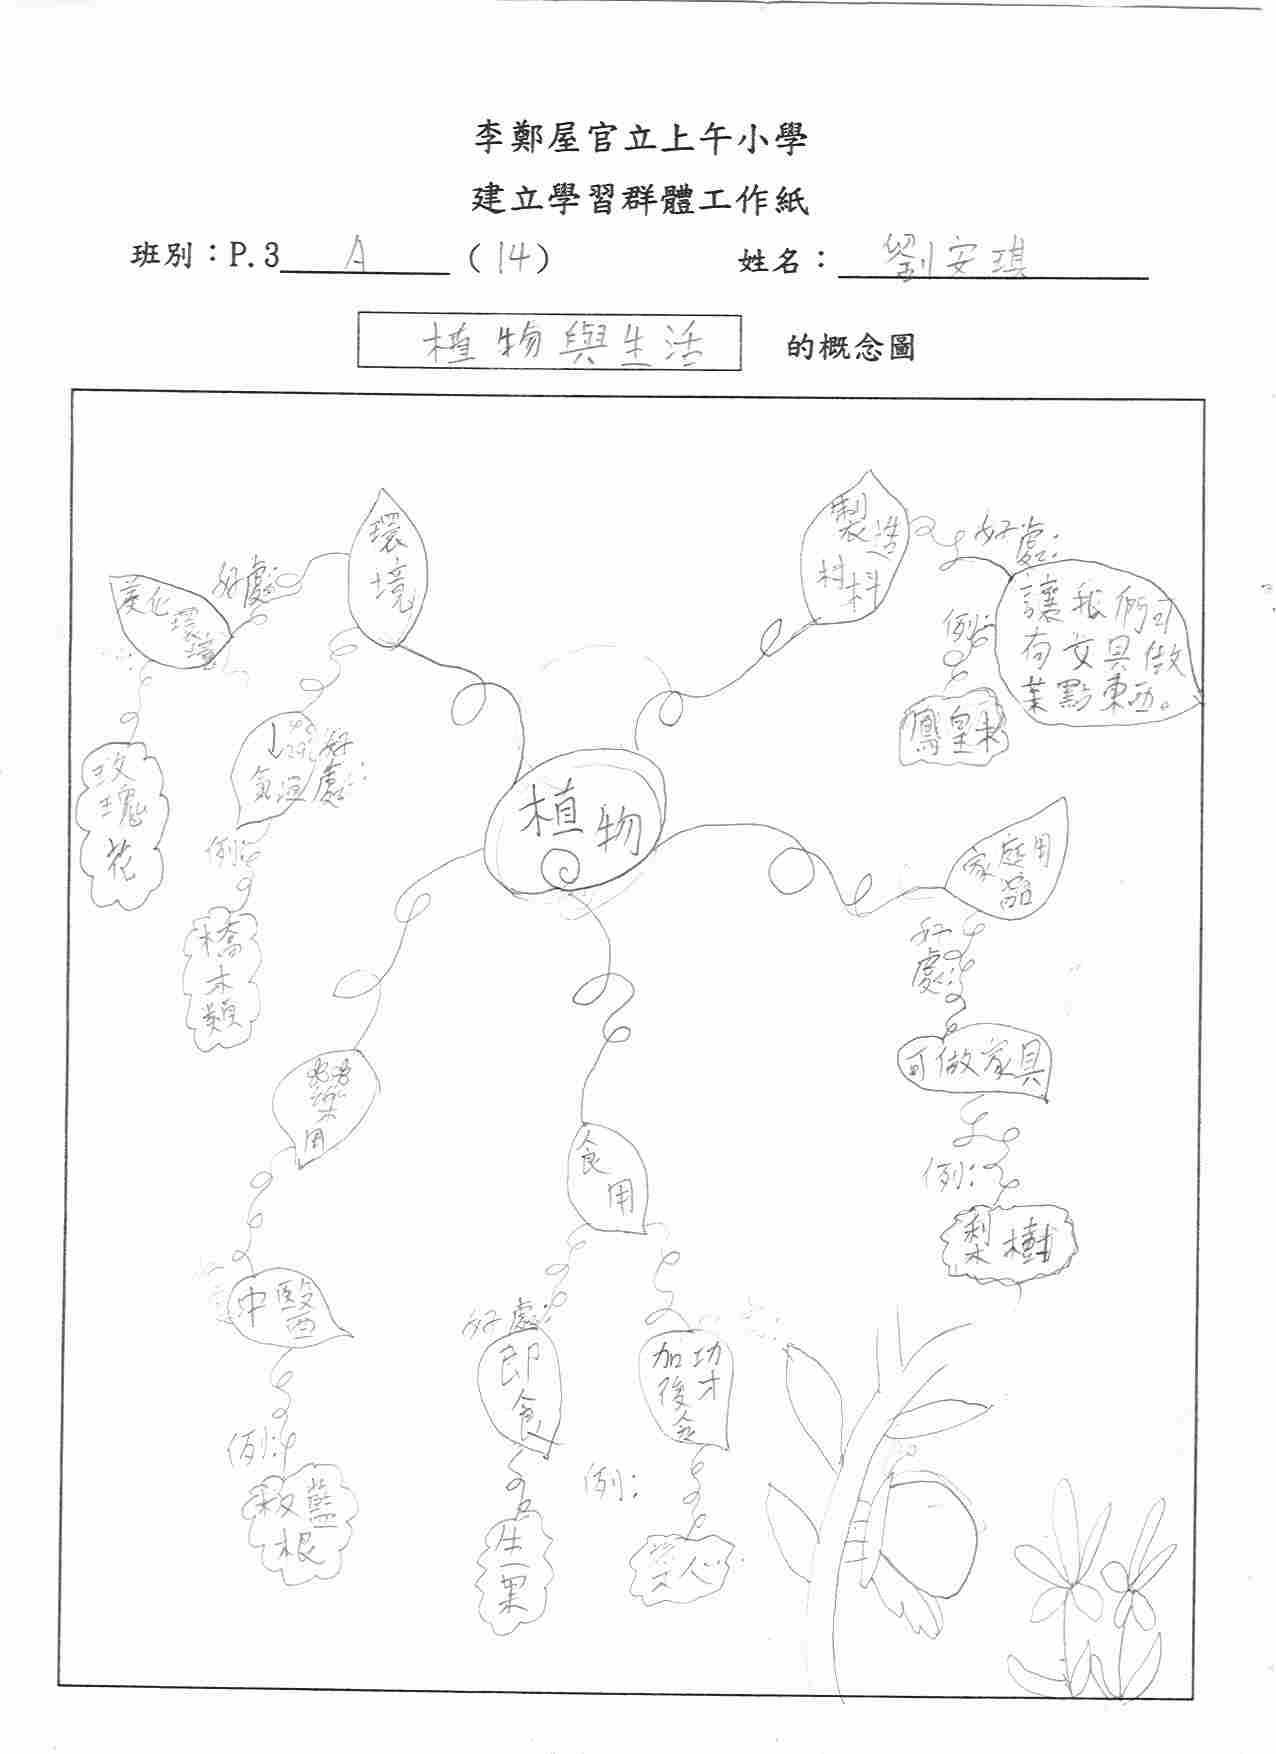 李鄭屋官立上午小學
建立學習群體工作紙
班別：P.3 A （14） 姓名：劉安琪
植物與生活 的概念圖
植物
環境
好處：
美化環境
玫瑰花
↓
氣溫
好處：
例：
橋木類
製造
材料
好處：
讓我們可
有文具做
業點東西。
例：
鳳皇木
家庭用
品
好
處：
可做家具
例：
梨樹
藥
用
中醫
例：
板藍
根
食
用
好處：
即
食
生果
加工力才
後食
例：
菜心